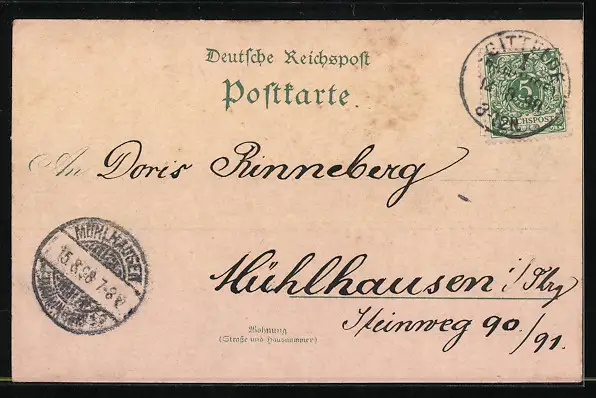 Deutsche Reichspost
Postkarte.
GITTELDE
5
REICHSPOST
8-12N.
An Doris Rinneberg
MÜHLHAUSEN
15.8.98 7-8V.
Mühlhausen i/Thrg
Steinweg 90/91.
Wohnung
(Straße und Hausnummer)